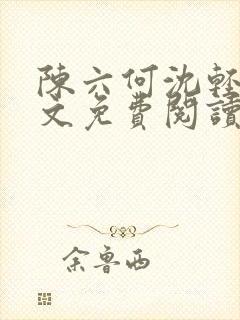 陳六何沈輕
文免費閱讀
余魯西